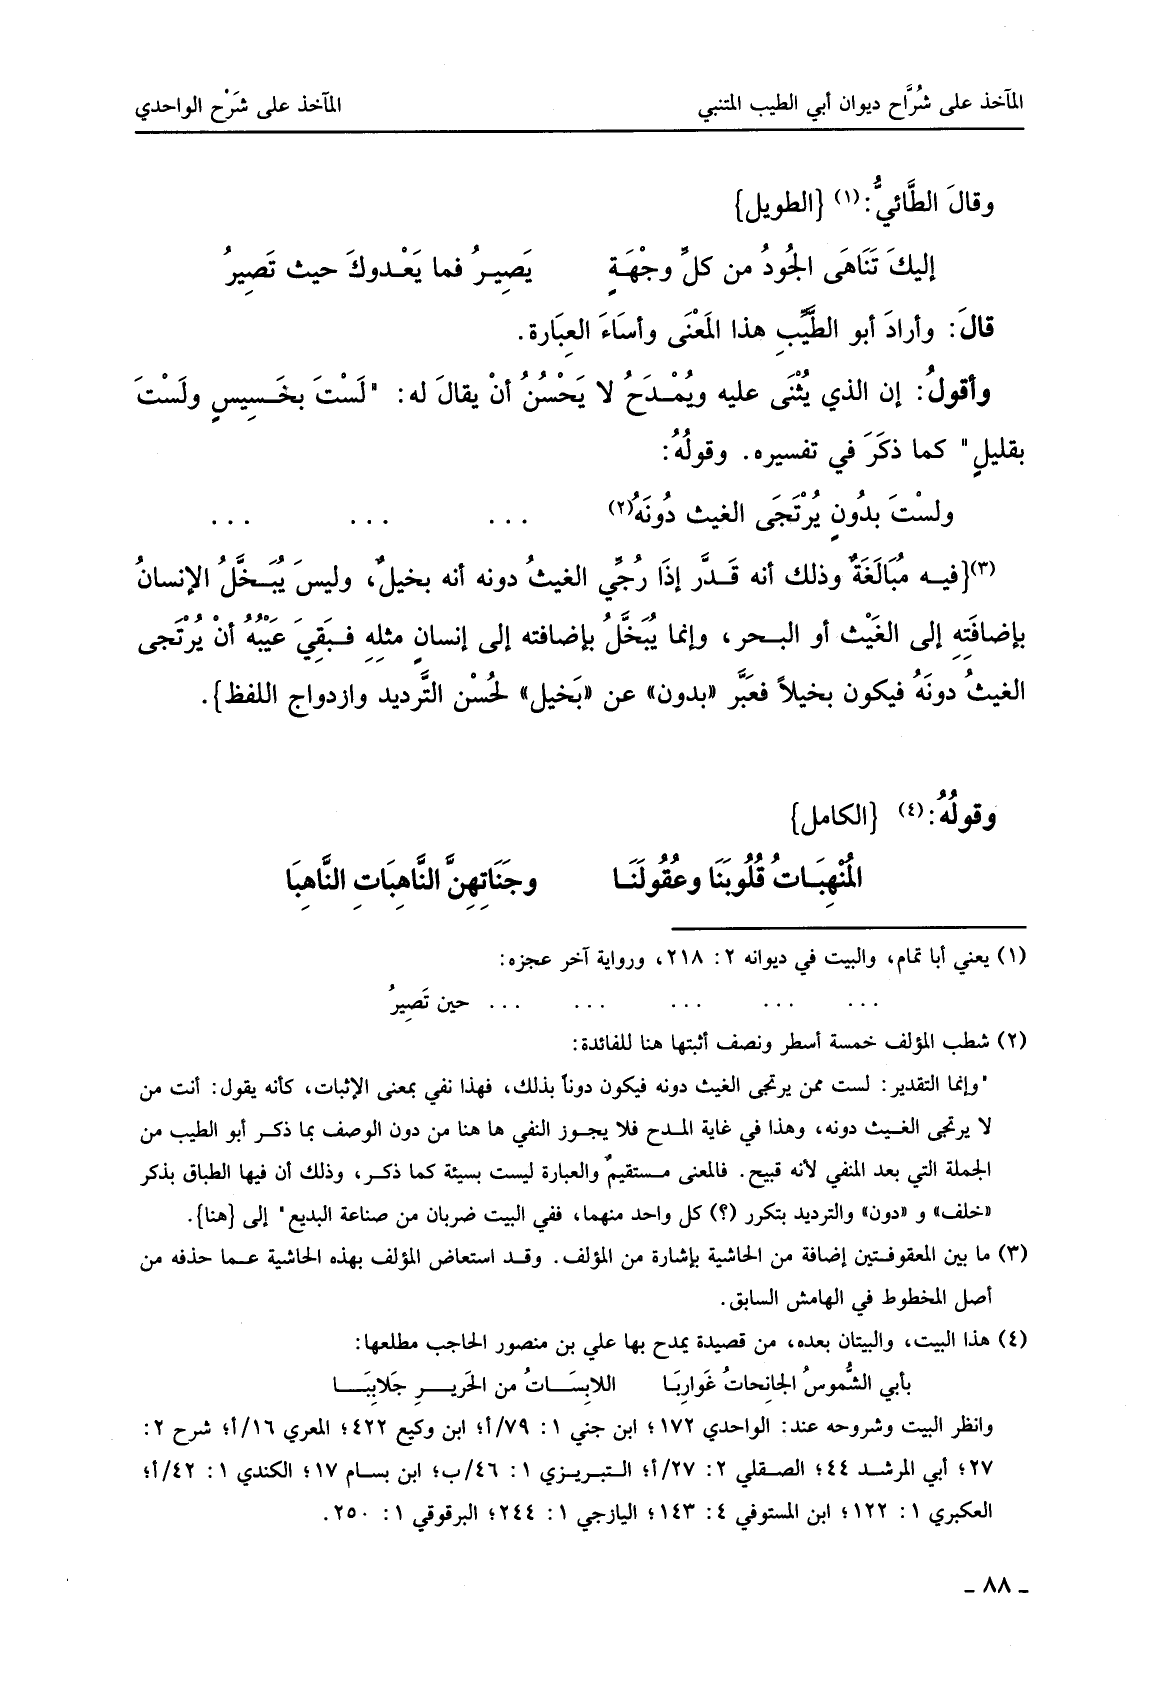 المآخذ على شُرَّاح ديوان أبي الطيب المتنبي المآخذ على شَرْح الواحدي
وقالَ الطَّائيُّ:(١) {الطويل}
إليكَ تَنَاهَى الجُودُ من كلِّ وجْهَةٍ يَصِيرُ فما يَعْدوكَ حيث تَصِيرُ
قالَ: وأرادَ أبو الطَّيِّبِ هذا المَعْنَى وأسَاءَ العِبَارة.
وأقولُ: إن الذي يُثْنَى عليه ويُمْدَحُ لا يَحْسُنُ أنْ يقالَ له: "لَسْتَ بخَسِيسٍ ولَسْتَ
بقليلٍ" كما ذكَرَ في تفسيره. وقولُهُ:
ولسْتَ بدُونٍ يُرْتَجَى الغيث دُونَهُ(٢) ... ... ...
(٣){فيه مُبَالَغَةٌ وذلك أنه قَدَّر إذَا رُجِّي الغيثُ دونه أنه بخيلٌ، وليسَ يُبَخَّلُ الإنسانُ
بإضافَتِهِ إلى الغَيْث أو البحر، وإنما يُبَخَّلُ بإضافته إلى إنسانٍ مثلِهِ فبَقِيَ عَيْبُهُ أنْ يُرْتَجى
الغيثُ دونَهُ فيكون بخيلاً فعَبَّر «بدون» عن «بَخيل» لحُسْن التَّرديد وازدواج اللفظ}.
وقولُهُ:(٤) {الكامل}
المُنْهِبَاتُ قُلُوبَنَا وعُقُولَنَا وجَنَاتِهِنَّ النَّاهِبَاتِ النَّاهِبَا
(١) يعني أبا تمام، والبيت في ديوانه ٢: ٢١٨، ورواية آخر عجزه:
... ... ... ... ... حين تَصِيرُ
(٢) شطب المؤلف خمسة أسطر ونصف أثبتها هنا للفائدة:
"وإنما التقدير: لست ممن يرتجى الغيث دونه فيكون دوناً بذلك، فهذا نفي بمعنى الإثبات، كأنه يقول: أنت من
لا يرتجى الغيث دونه، وهذا في غاية المدح فلا يجوز النفي ها هنا من دون الوصف بما ذكر أبو الطيب من
الجملة التي بعد المنفي لأنه قبيح. فالمعنى مستقيمٌ والعبارة ليست بسيئة كما ذكر، وذلك أن فيها الطباق بذكر
«خلف» و «دون» والترديد بتكرر (؟) كل واحد منهما، ففي البيت ضربان من صناعة البديع" إلى {هنا}.
(٣) ما بين المعقوفتين إضافة من الحاشية بإشارة من المؤلف. وقد استعاض المؤلف بهذه الحاشية عما حذفه من
أصل المخطوط في الهامش السابق.
(٤) هذا البيت، والبيتان بعده، من قصيدة يمدح بها علي بن منصور الحاجب مطلعها:
بأبي الشُّموسُ الجانِحاتُ غَوارِبَا اللابِسَاتُ من الحَريرِ جَلابِبَا
وانظر البيت وشروحه عند: الواحدي ١٧٢؛ ابن جني ١: ٧٩/أ؛ ابن وكيع ٤٢٢؛ المعري ١٦/أ؛ شرح ٢:
٢٧؛ أبي المرشد ٤٤؛ الصقلي ٢: ٢٧/أ؛ التبريزي ١: ٤٦/ب؛ ابن بسام ١٧؛ الكندي ١: ٤٢/أ؛
العكبري ١: ١٢٢؛ ابن المستوفي ٤: ١٤٣؛ اليازجي ١: ٢٤٤؛ البرقوقي ١: ٢٥٠.
ـ ٨٨ ـ